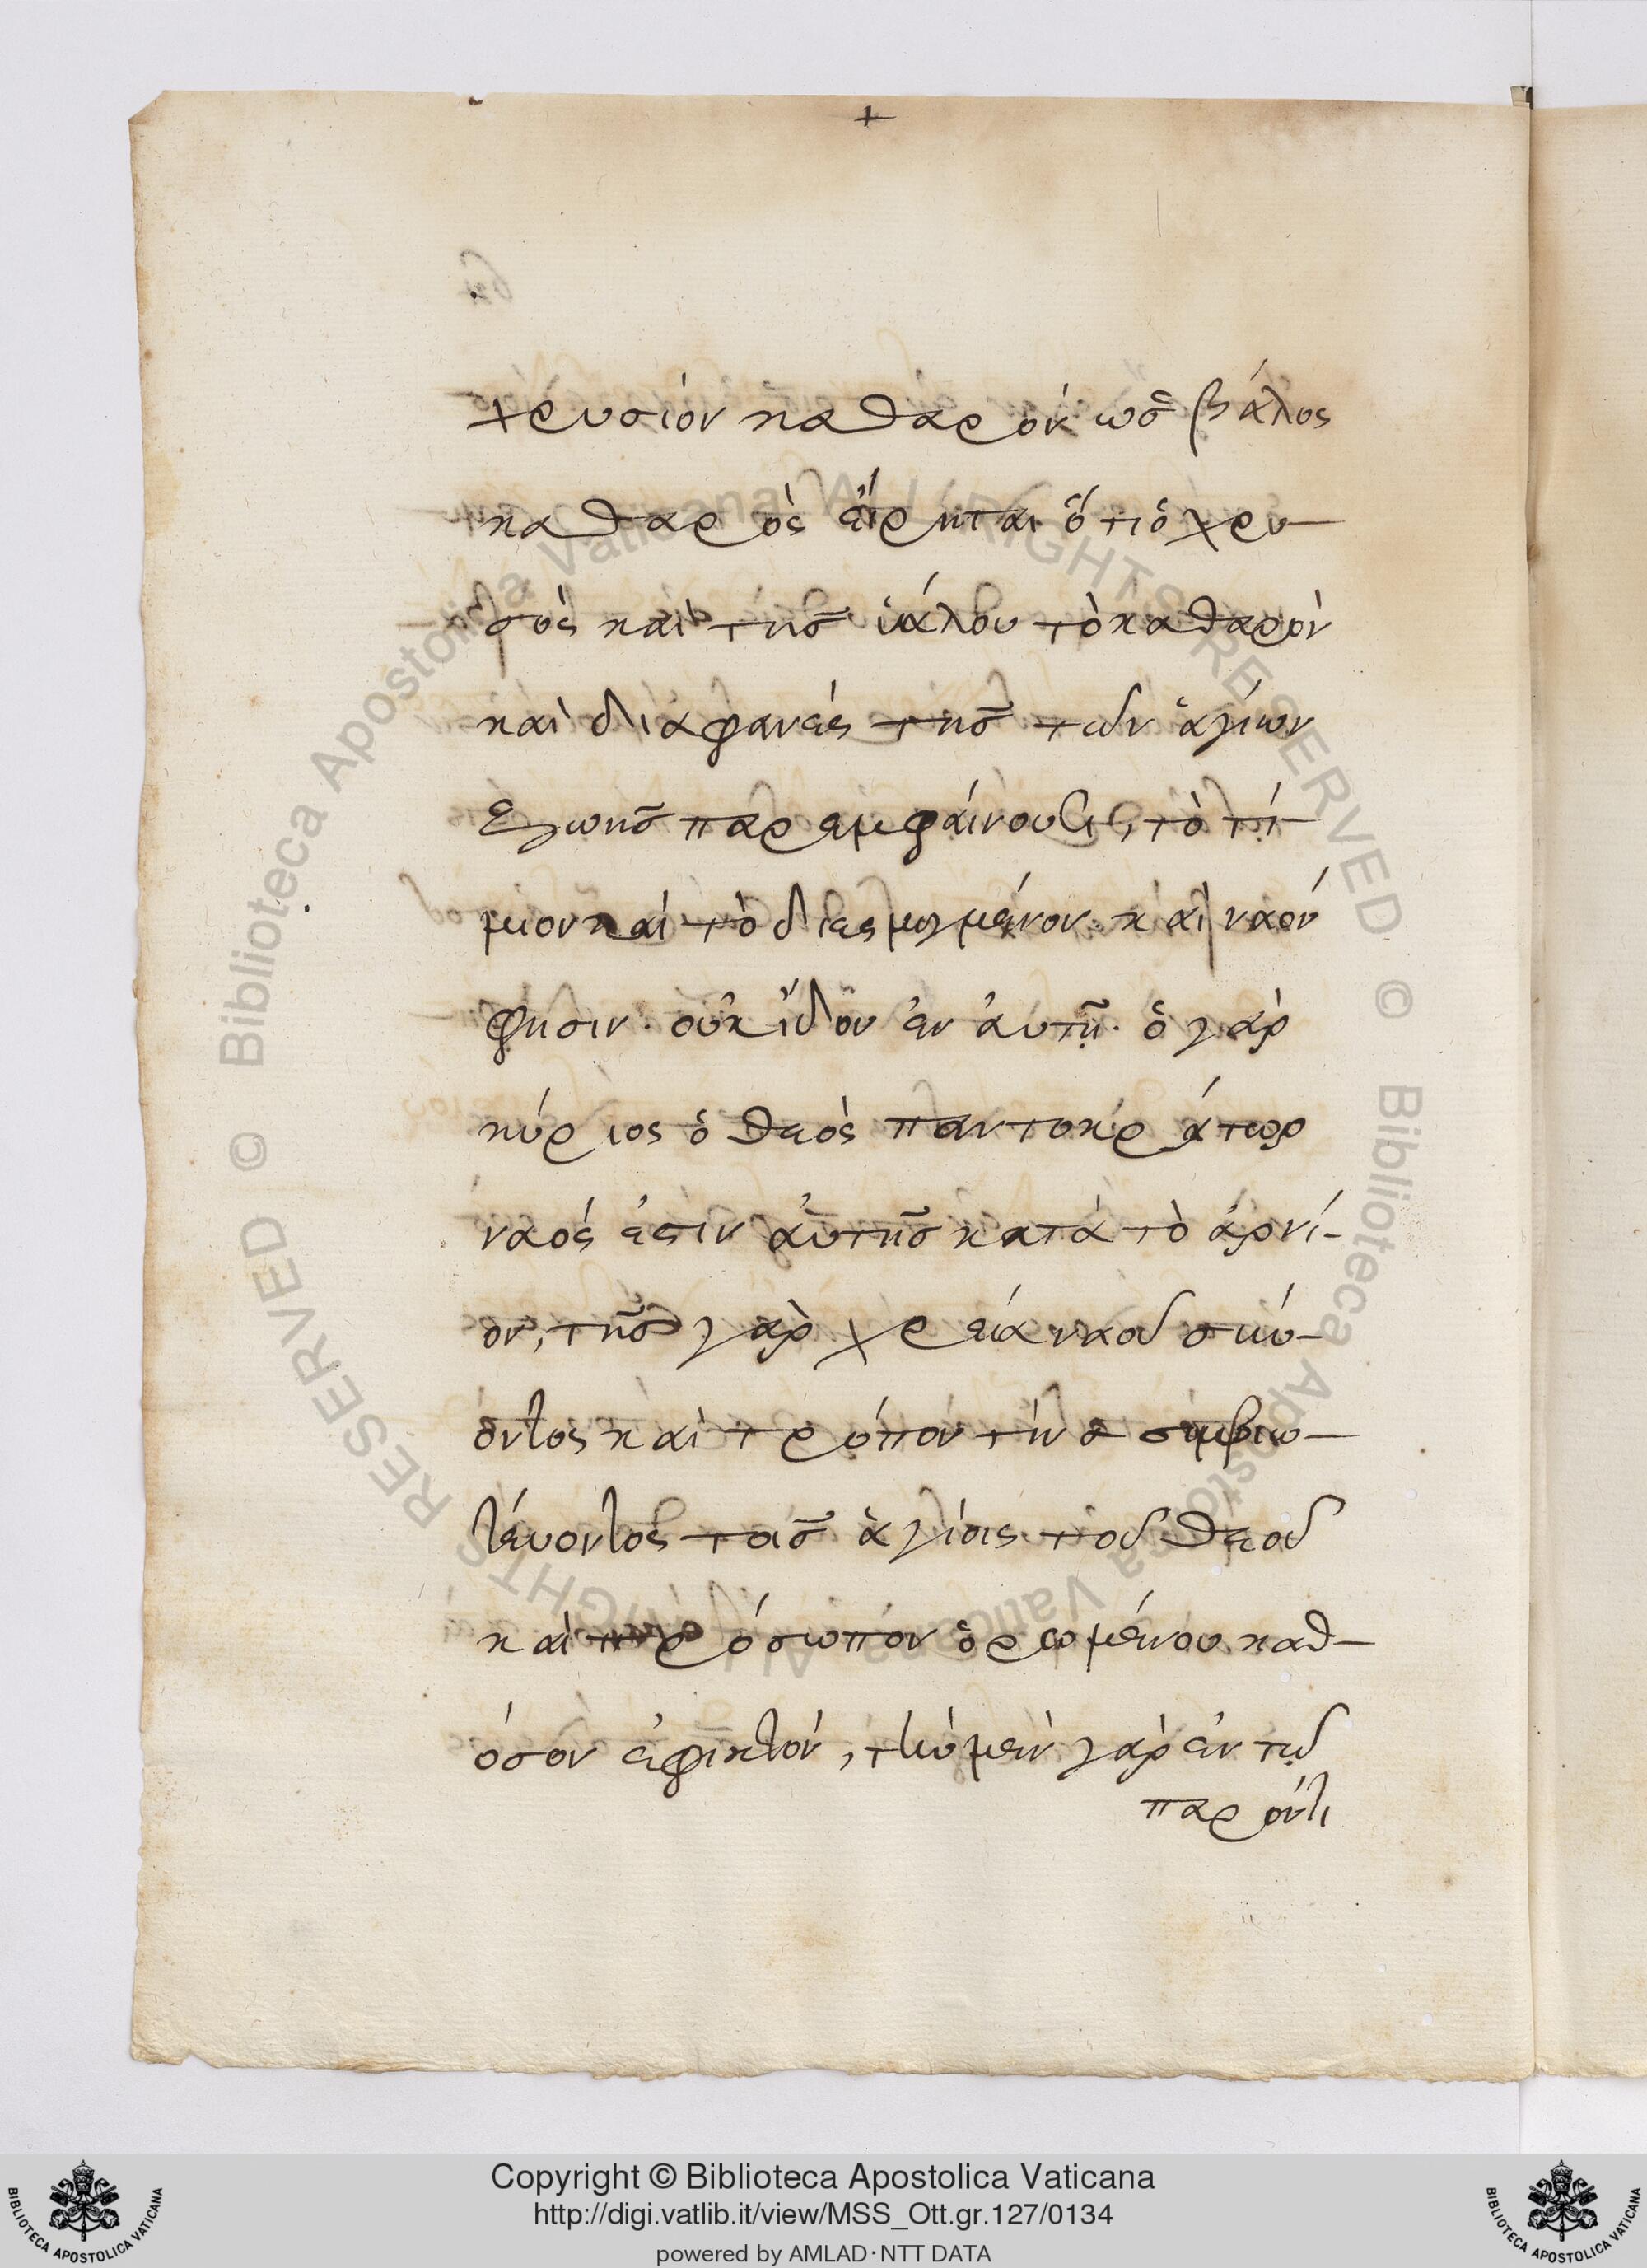 +
χρυσίον καθαρὸν ὡς βάλος
καθαρὸς εἴρηται ὅτι ὁ χρυ-
σὸς καὶ τῆς ὑάλου τὸ καθαρὸν
καὶ διαφανὲς τῆς τῶν ἁγίων
ζωῆς παρεμφαίνουσι, τὸ τί-
μιον καὶ τὸ διεσμυγμένον. καὶ ναὸν
φησιν. οὐκ ἴδον ἐν αὐτῇ. ὁ γὰρ
κύριος ὁ θεὸς παντοκράτωρ
ναός ἐστιν αὐτῆς κατὰ τὸ ἀρνί-
ον, τῆς γὰρ χρεία ναοῦ συν-
όντος καὶ τρόπον τινὰ συμβιω-
τεύοντος τοῖς ἁγίοις τοῦ θεοῦ
καὶ πρόσωπον ὁρωμένου καθ-
όσον ἐφικτόν, τὴν μὲν γὰρ ἐν τῷ
παρόντι
Copyright © Biblioteca Apostolica Vaticana
http://digi.vatlib.it/view/MSS_Ott.gr.127/0134
powered by AMLAD·NTT DATA
BIBLIOTECA APOSTOLICA VATICANA
BIBLIOTECA APOSTOLICA VATICANA
© Biblioteca Apostolica Vaticana ALL RIGHTS RESERVED © Biblioteca Apostolica Vaticana ALL RIGHTS RESERVED